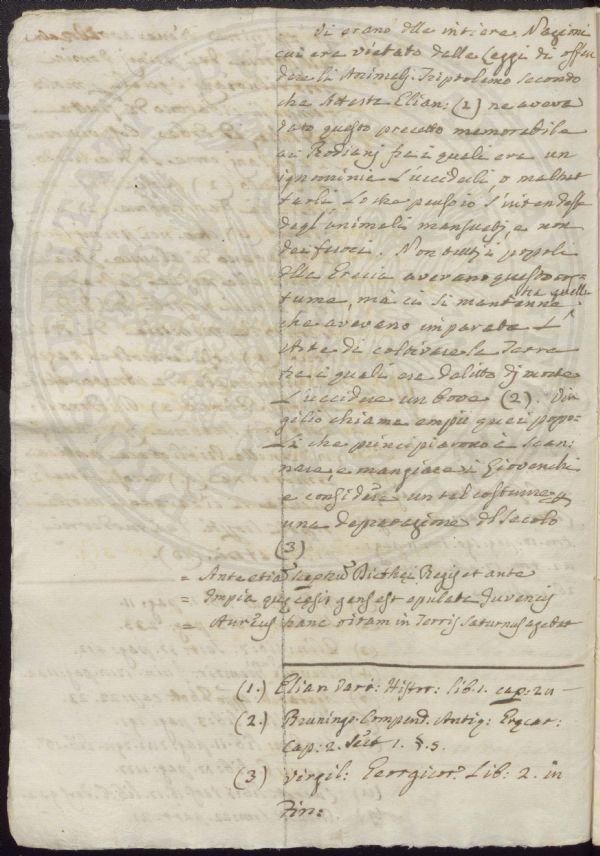 Vi erano delle intiere Nazioni
cui era vietato dalle Leggi di offen
dere li Animali. Triptolimo secondo
che Attesta Elian: (2) ne aveva
dato questo precetto memorabile
ai fra i quali era un
ignominia l'ucciderli, o maltrat
tarli Lo che penso io s'intendesse
degl'animali mansueti, e non
dei feroci. Non tutti i popoli
della Grecia avevano questo cos=
tume, mà ci si mantenne trà quelli
che avevano imparato L'
Arte di coltivare la Terra
trà i quali era delitto di morte
L'uccidere un bove (2). Vir
gilio chiama empii quei popo=
li che principiarono a scan=
nare, e mangiare i Giovenchi
e considera un tal costume
una depravazione del secolo
(3)
= Ante etiam sceptrum Dicthei Regis et ante
= Impia quam cesis gens est epulata Juvencis
= Aureus hanc vitam in Terris Saturnus agebat
(1.) Elian Varo: Histor: lib. 1. cap: 2u —
(2.) Bruningo Compend. Antiq: Grecar:
Cap: 2. Sect 1. §. 5.
(3) Virgil: Georgicor. Lib: 2. in
Fin: